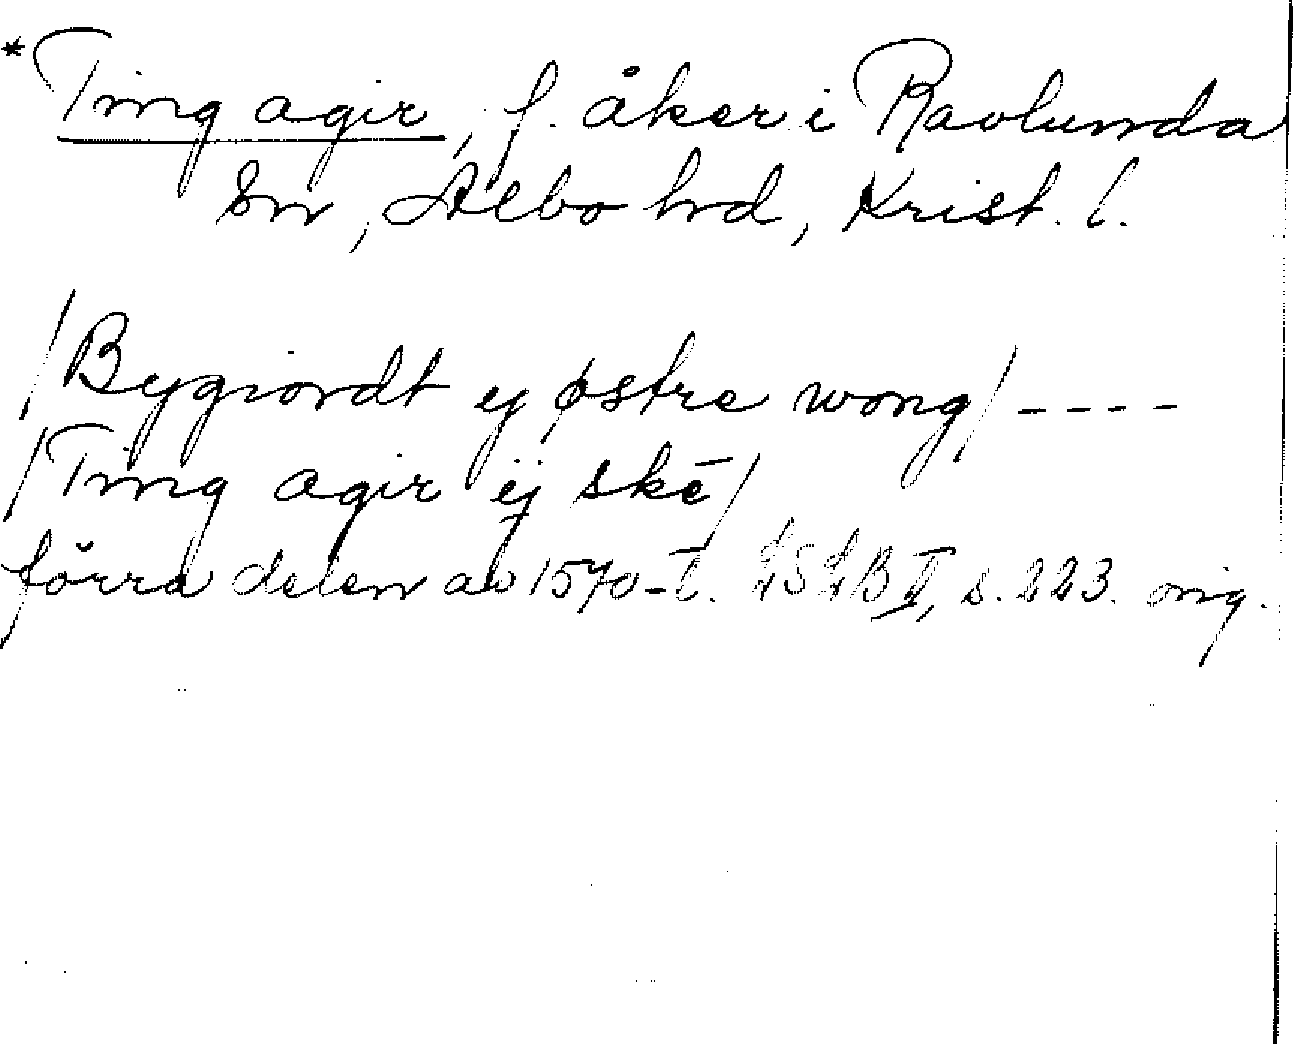 *Ting agir, f. åker i Ravlunda
sn, Albo hd, Krist. l.
/Bygiordt ij østre wong/ ----
/Ting agir ij skē/
förra delen av 1570-t. LSLB II, s. 223. orig.